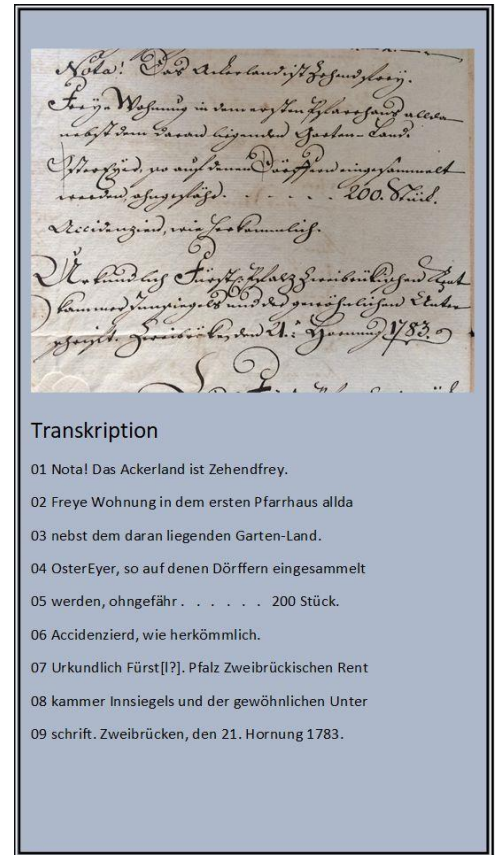 Nota! Das Ackerland ist Zehendfrey.
Freye Wohnung in dem ersten Pfarrhaus allda
nebst dem daran liegenden Garten-Land.
OsterEyer, so auf denen Dörffern eingesammelt
werden, ohngefähr . . . . . . 200. Stück.
Accidenzien, wie herkömmlich.
Urkundlich Fürstl. Pfalz Zweibrückischen Rent
kammer Innsiegels und der gewöhnlichen Unter
schrift. Zweibrücken den 21. Hornung 1783.
Transkription
01 Nota! Das Ackerland ist Zehendfrey.
02 Freye Wohnung in dem ersten Pfarrhaus allda
03 nebst dem daran liegenden Garten-Land.
04 OsterEyer, so auf denen Dörffern eingesammelt
05 werden, ohngefähr . . . . . . 200 Stück.
06 Accidenzierd, wie herkömmlich.
07 Urkundlich Fürst[l?]. Pfalz Zweibrückischen Rent
08 kammer Innsiegels und der gewöhnlichen Unter
09 schrift. Zweibrücken, den 21. Hornung 1783.